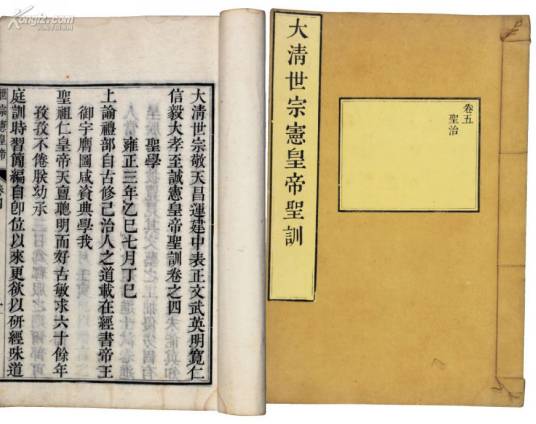 大清世宗憲皇帝聖訓
卷五
聖治
大清世宗敬天昌運建中表正文武英明寬仁
信毅大孝至誠憲皇帝聖訓卷之四
聖學
雍正三年乙巳七月丁巳
上諭禮部自古修己治人之道載在經書帝王
御宇膺圖咸資典學我
聖祖仁皇帝天亶聰明而好古敏求六十餘年
孜孜不倦朕幼承
庭訓時習簡編自卽位以來更欲以研經味道
宗憲皇帝
卷四